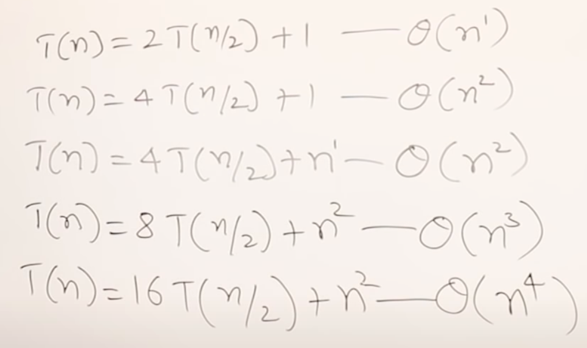 T(n) = 2T(n/2) + 1 — Θ(n¹)
T(n) = 4T(n/2) + 1 — Θ(n²)
T(n) = 4T(n/2) + n¹ — Θ(n²)
T(n) = 8T(n/2) + n² — Θ(n³)
T(n) = 16T(n/2) + n² — Θ(n⁴)